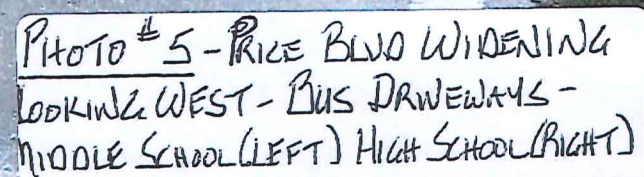 PHOTO #5 - PRICE BLVD WIDENING
LOOKING WEST - BUS DRIVEWAYS -
MIDDLE SCHOOL (LEFT) HIGH SCHOOL (RIGHT)